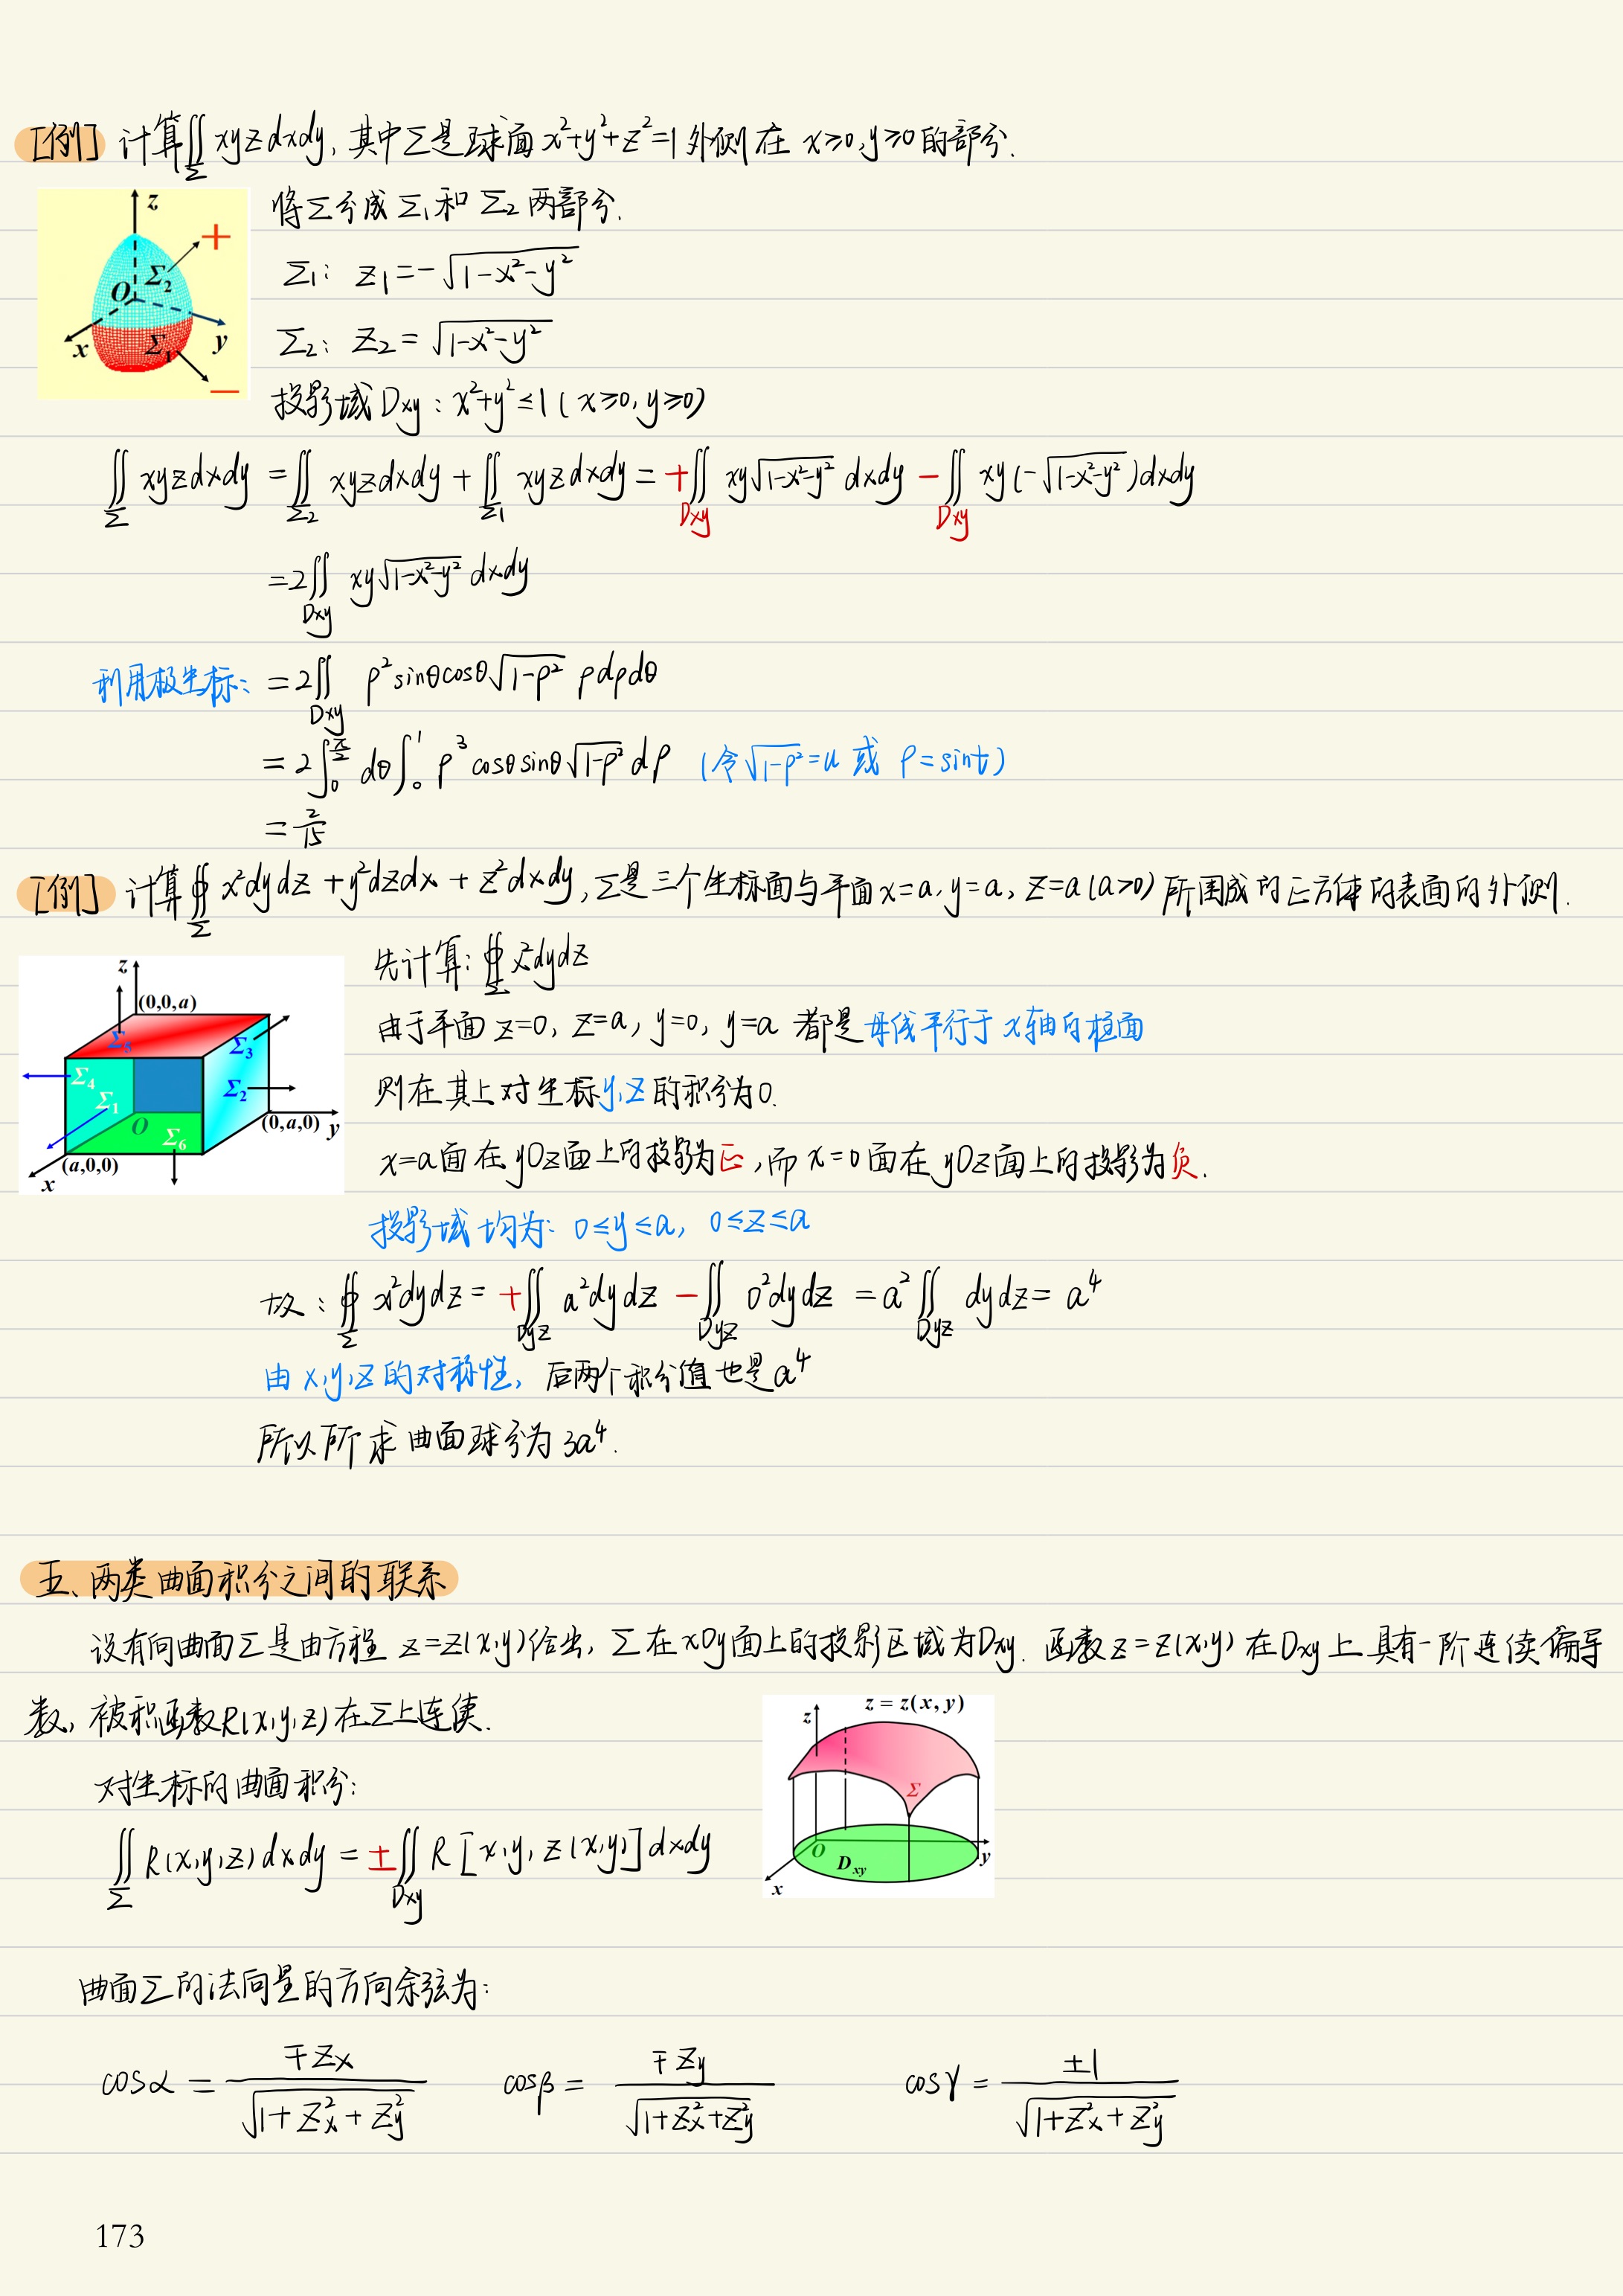 [例] 计算∬_Σ xyzdxdy, 其中Σ是球面 x²+y²+z²=1 外侧在 x≥0,y≥0 的部分.
将Σ分成 Σ₁和 Σ₂ 两部分.
z
+
Σ₂
O
x
Σ₁
y
−
Σ₁: z₁=-√(1-x²-y²)
Σ₂: z₂=√(1-x²-y²)
投影域 Dxy : x²+y²≤1 ( x≥0, y≥0)
∬_Σ xyzdxdy = ∬_Σ₂ xyzdxdy + ∬_Σ₁ xyzdxdy = +∬_Dxy xy√(1-x²-y²) dxdy - ∬_Dxy xy(-√(1-x²-y²))dxdy
=2∬_Dxy xy√(1-x²-y²) dxdy
利用极坐标: =2∬_Dxy ρ²sinθcosθ√(1-ρ²) ρdρdθ
= 2∫₀^(π/2) dθ∫₀¹ ρ³cosθsinθ√(1-ρ²) dρ (令√(1-ρ²)=u 或 ρ=sint)
= 2/15
[例] 计算∯_Σ x²dydz + y²dzdx + z²dxdy, Σ是三个坐标面与平面 x=a, y=a, z=a (a>0) 所围成的正方体的表面的外侧.
z
(0,0,a)
Σ₅
Σ₃
Σ₄
Σ₁
Σ₂
O
Σ₆
(0,a,0) y
(a,0,0)
x
先计算: ∯_Σ x²dydz
由于平面 z=0, z=a, y=0, y=a 都是母线平行于 x轴的柱面
则在其上对坐标y,z的积分为0.
x=a面在 yOz面上的投影为正, 而 x=0面在 yOz面上的投影为负.
投影域均为: 0≤y≤a, 0≤z≤a
故: ∯_Σ x²dydz = +∬_Dyz a²dydz - ∬_Dyz 0²dydz = a²∬_Dyz dydz = a⁴
由 x,y,z 的对称性, 后两个积分值也是 a⁴
所以所求曲面球分为 3a⁴.
五、两类曲面积分之间的联系
设有向曲面Σ是由方程 z=z(x,y)给出, Σ在xOy面上的投影区域为Dxy. 函数z=z(x,y) 在Dxy上具有一阶连续偏导
数, 被积函数R(x,y,z)在Σ上连续.
z = z(x, y)
z
Σ
O
D_xy
y
x
对坐标的曲面积分:
∬_Σ R(x,y,z) dxdy = ±∬_Dxy R [x,y, z(x,y)] dxdy
曲面Σ的法向量的方向余弦为:
cosα = ∓Zx/√(1+Zx²+Zy²) cosβ = ∓Zy/√(1+Zx²+Zy²) cosγ = ±1/√(1+Zx²+Zy²)
173